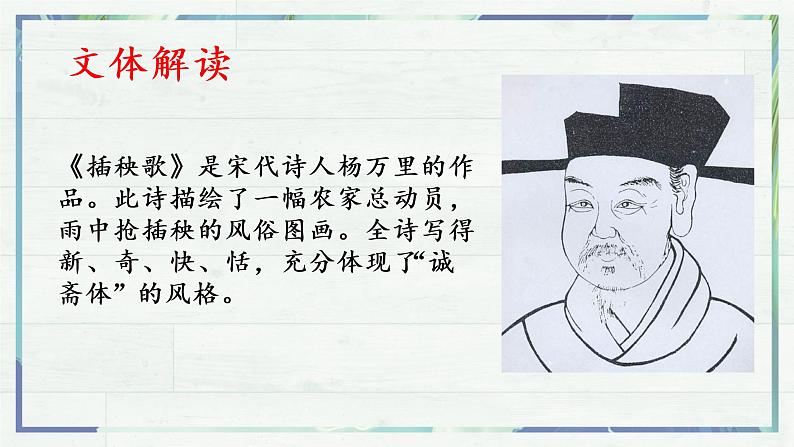 文体解读
《插秧歌》是宋代诗人杨万里的作
品。此诗描绘了一幅农家总动员，
雨中抢插秧的风俗图画。全诗写得
新、奇、快、恬，充分体现了“诚
斋体”的风格。